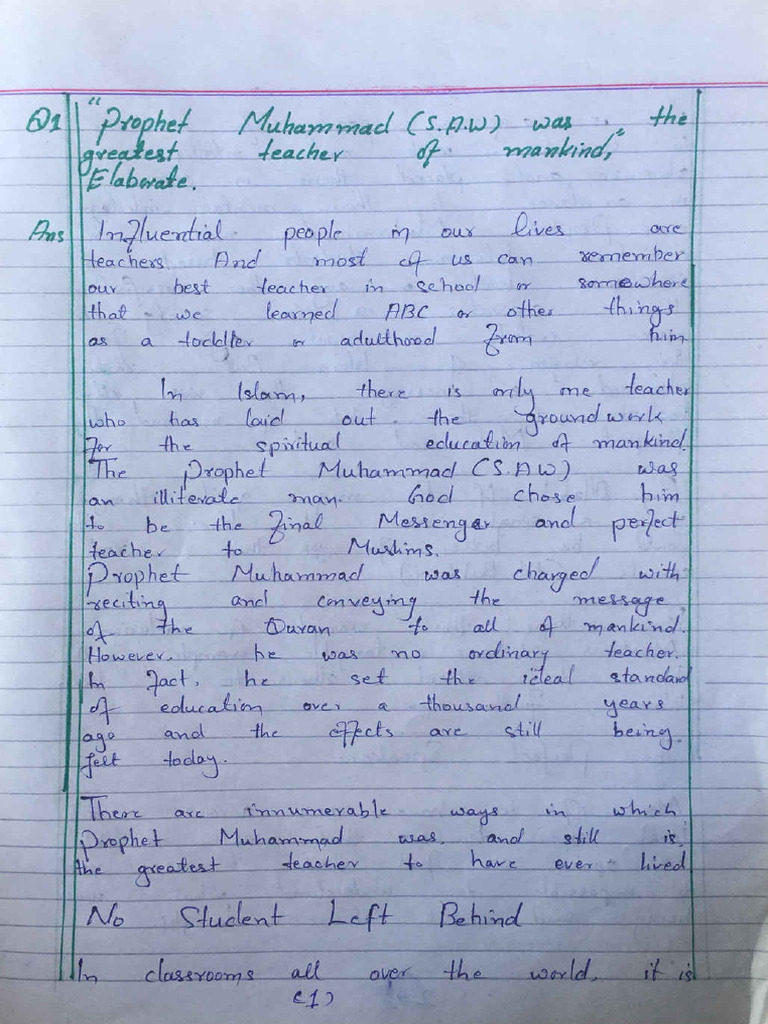 Q1 "Prophet Muhammad (S.A.W) was the
greatest teacher of mankind,"
Elaborate.
Ans Influential people in our lives are
teachers. And most of us can remember
our best teacher in school or somewhere
that we learned ABC or other things
as a toddler or adulthood from him
In Islam, there is only one teacher
who has laid out the groundwork
for the spiritual education of mankind.
The Prophet Muhammad (S.A.W) was
an illiterate man. God chose him
to be the final Messenger and perfect
teacher to Muslims.
Prophet Muhammad was charged with
reciting and conveying the message
of the Quran to all of mankind.
However, he was no ordinary teacher.
In fact, he set the ideal standard
of education over a thousand years
ago and the effects are still being
felt today.
There are innumerable ways in which
Prophet Muhammad was, and still is,
the greatest teacher to have ever lived
No Student Left Behind
In classrooms all over the world, it is
(1)